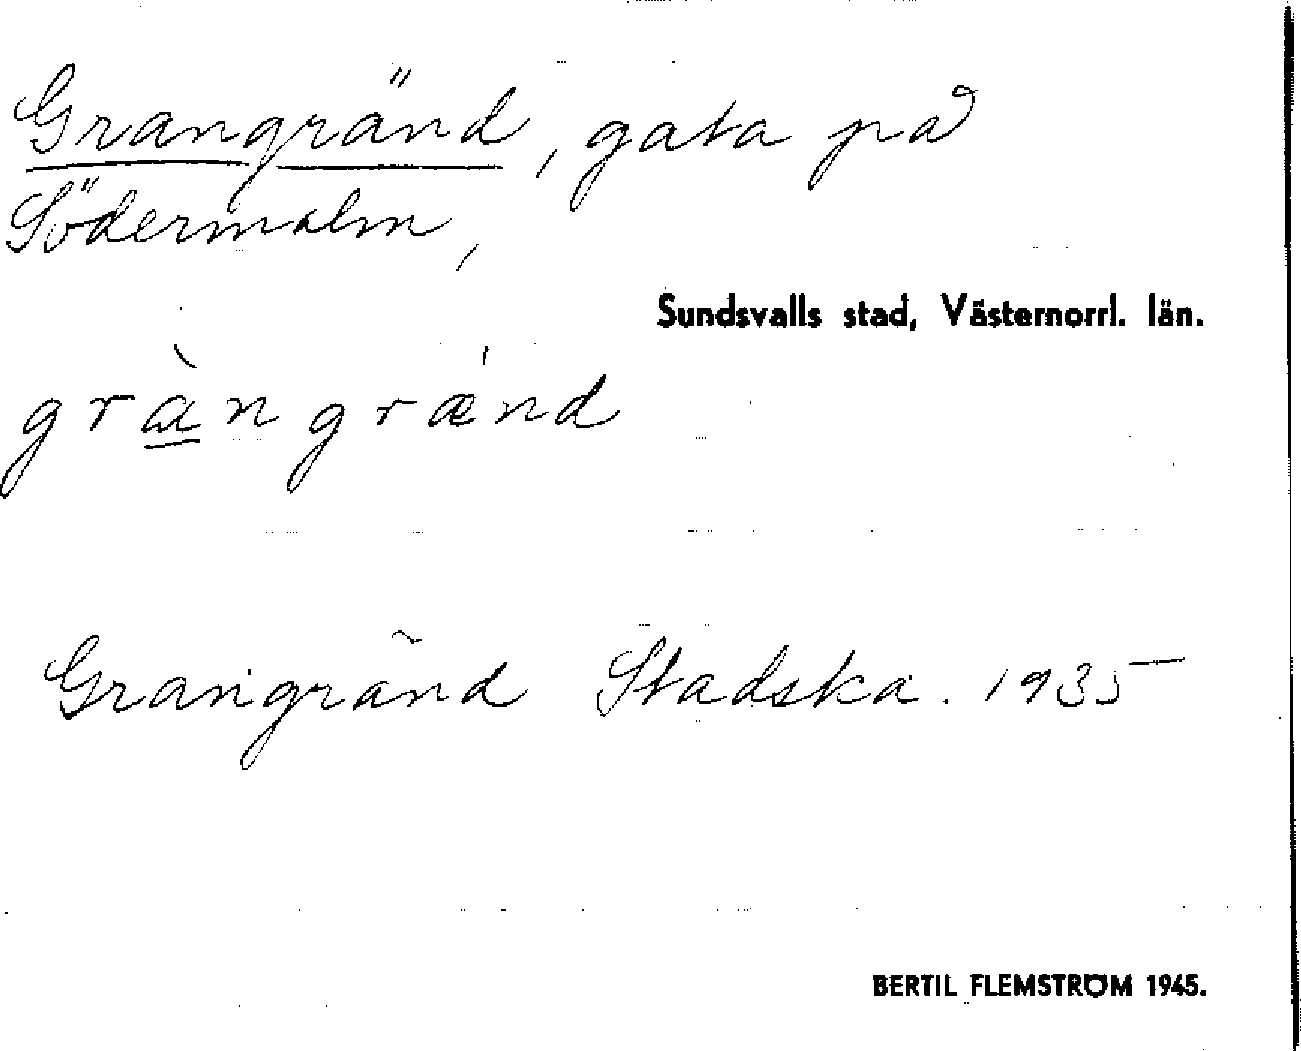 Grangränd, gata på
Södermalm,
Sundsvalls stad, Västernorrl. län.
gràngrǽnd
Grangränd Stadska. 1935
BERTIL FLEMSTRÖM 1945.